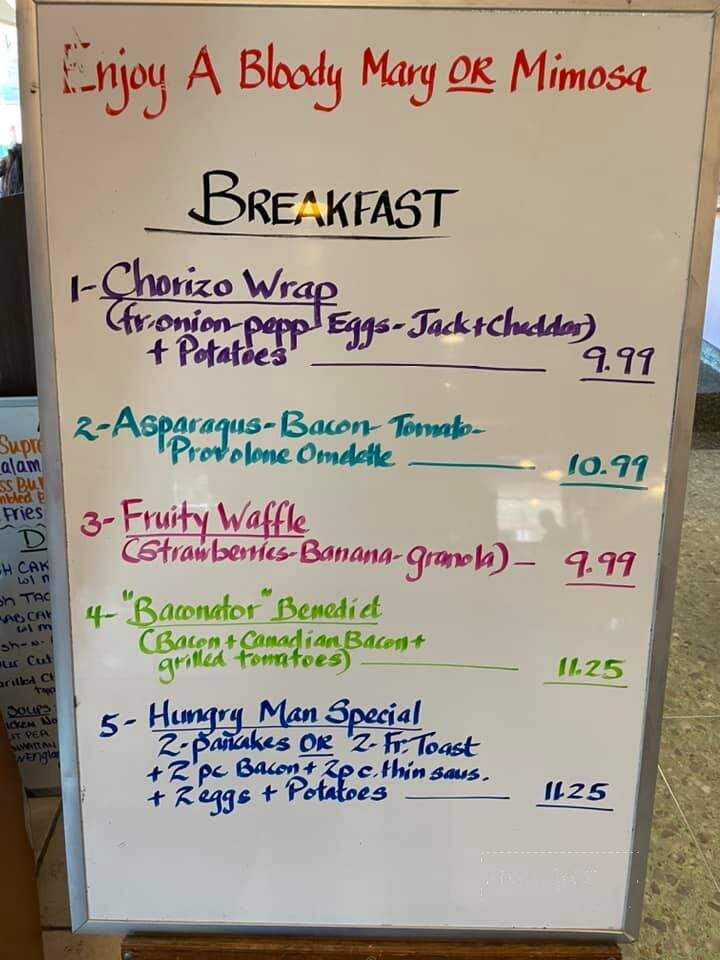 Enjoy A Bloody Mary OR Mimosa
BREAKFAST
1- Chorizo Wrap
(fr. onion-pepp Eggs - Jack + Cheddar)
+ Potatoes 9.99
2- Asparagus - Bacon - Tomato -
Provolone Omelette 10.99
3- Fruity Waffle
(Strawberries - Banana - granola) - 9.99
4- "Baconator" Benedict
(Bacon + Canadian Bacon +
grilled tomatoes) 11.25
5- Hungry Man Special
2- pancakes OR 2- Fr. Toast
+ 2 pc Bacon + 2 pc. thin saus.
+ 2 eggs + Potatoes 11.25
Supre
alam
Fries
D
H CAK
w/ m
TAC
CAK
w/ m
Cut
SOUPS